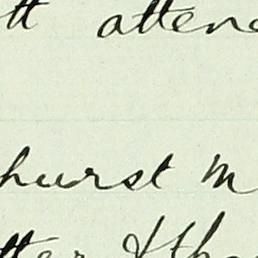 tt atten
hurst M
tter